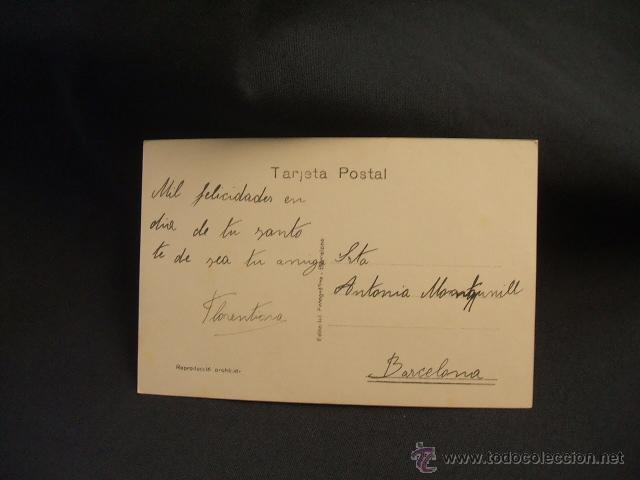 Tarjeta Postal
Mil felicidades en
dia de tu santo
te de sea tu amiga
Florentina
Srta
Antonia Montfunill
Barcelona
Reproducció prohibida
© todocoleccion
www.todocoleccion.net